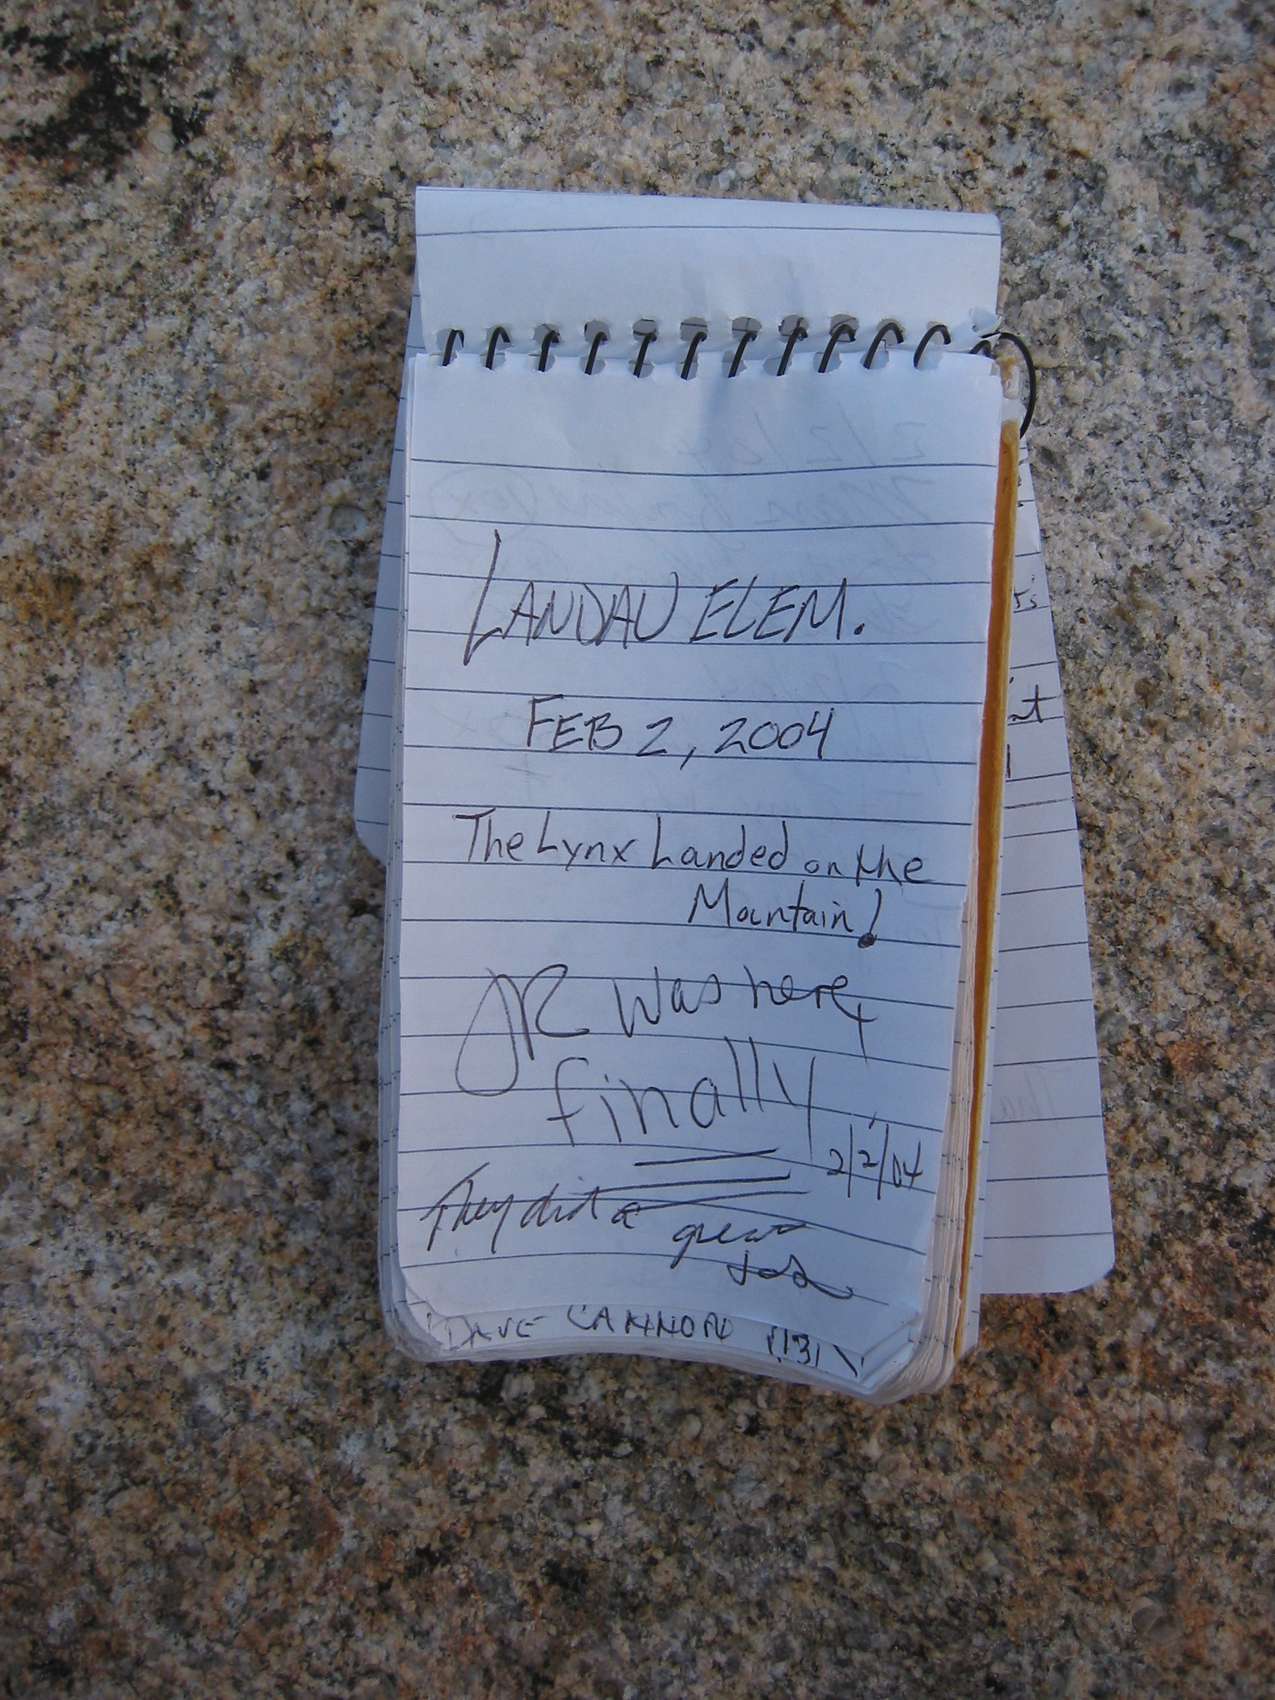 LANDAU ELEM.
FEB 2, 2004
The Lynx Landed on the
Mountain!
JR was here,
finally
2/2/04
They did a great
Job
DAVE CANNON